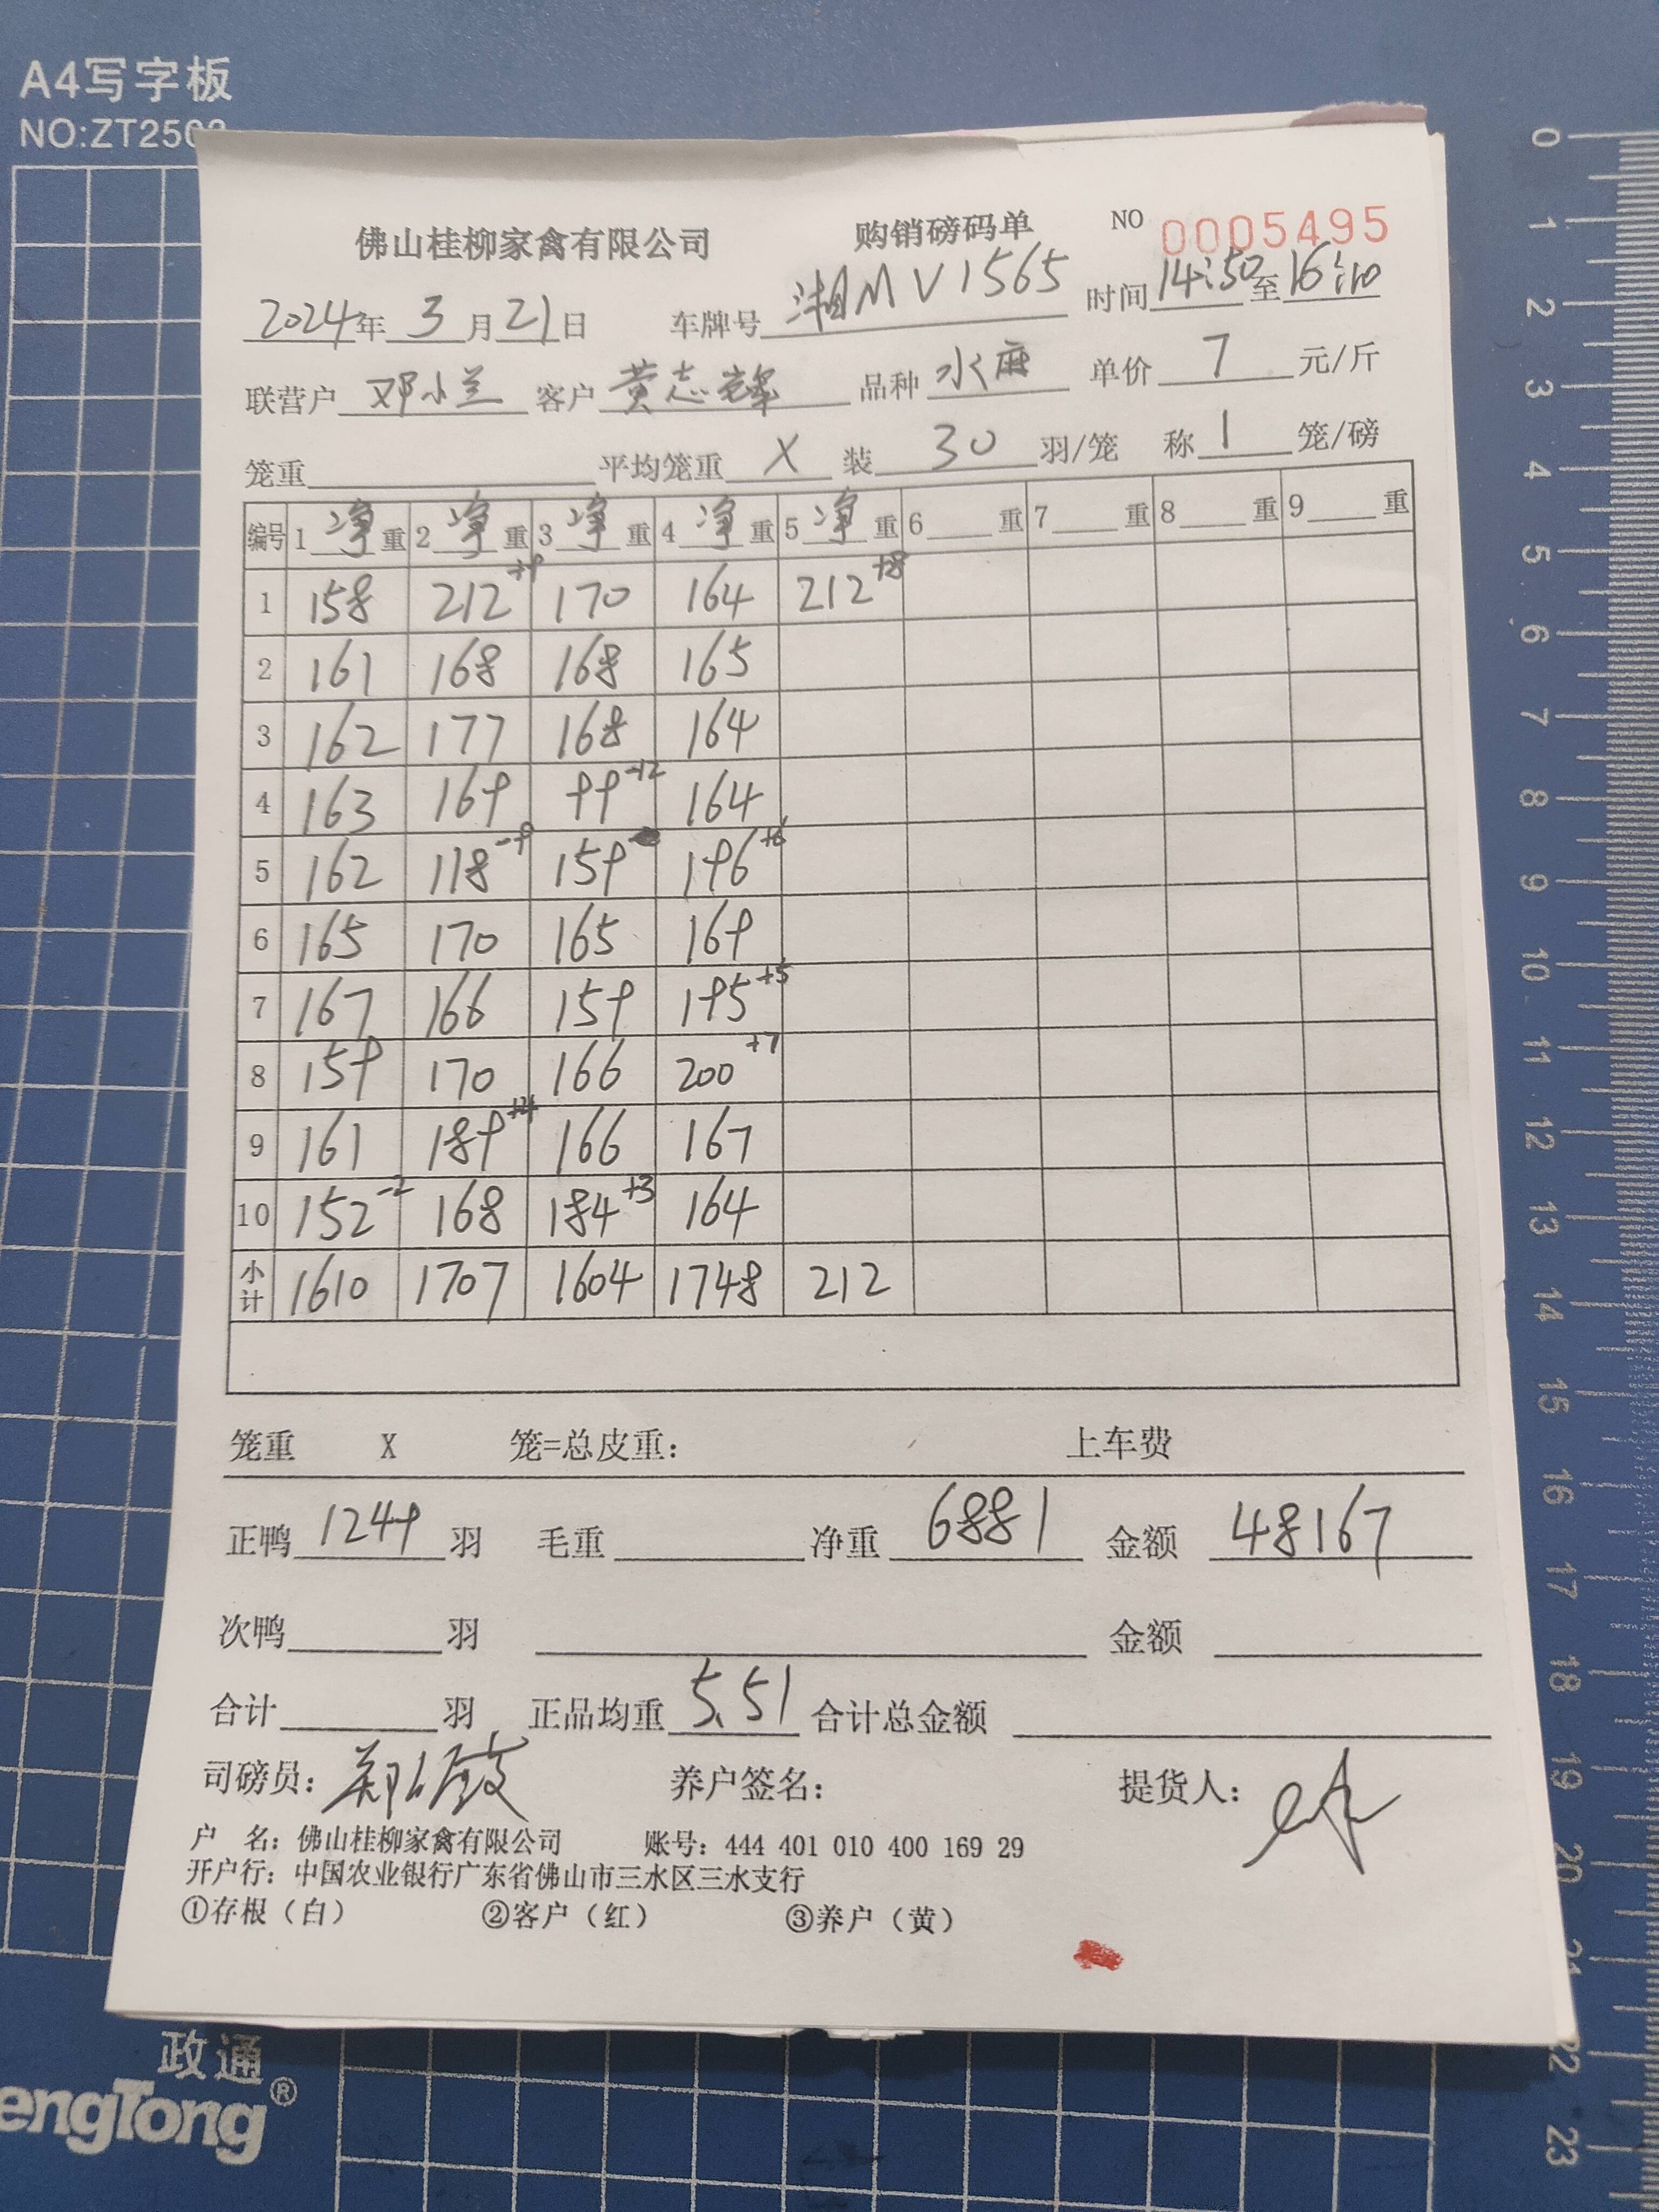 A4写字板
NO:ZT250
佛山桂柳家禽有限公司 购销磅码单 NO 0005495
2024年 3 月 21 日 车牌号 湘MV1565 时间 14:50 至 16:10
联营户 邓小兰 客户 黄志辉 品种 水麻 单价 7 元/斤
笼重 平均笼重 X 装 30 羽/笼 称 1 笼/磅
编号 1 净 重 2 净 重 3 净 重 4 净 重 5 净 重 6 重 7 重 8 重 9 重
1 158 212+9 170 164 212+8
2 161 168 168 165
3 162 177 168 164
4 163 169 99-12 164
5 162 118-9 159 196+6
6 165 170 165 169
7 167 166 159 195+5
8 159 170 166 200+7
9 161 189+4 166 167
10 152-2 168 184+3 164
小计 1610 1707 1604 1748 212
笼重 X 笼=总皮重: 上车费
正鸭 1249 羽 毛重 净重 6881 金额 48167
次鸭 羽 金额
合计 羽 正品均重 5.51 合计总金额
司磅员: 养户签名: 提货人:
户 名: 佛山桂柳家禽有限公司 账号: 444 401 010 400 169 29
开户行: 中国农业银行广东省佛山市三水区三水支行
①存根（白） ②客户（红） ③养户（黄）
政通
engTong®
0
1
2
3
4
5
6
7
8
9
10
11
12
13
14
15
16
17
18
19
20
21
22
23